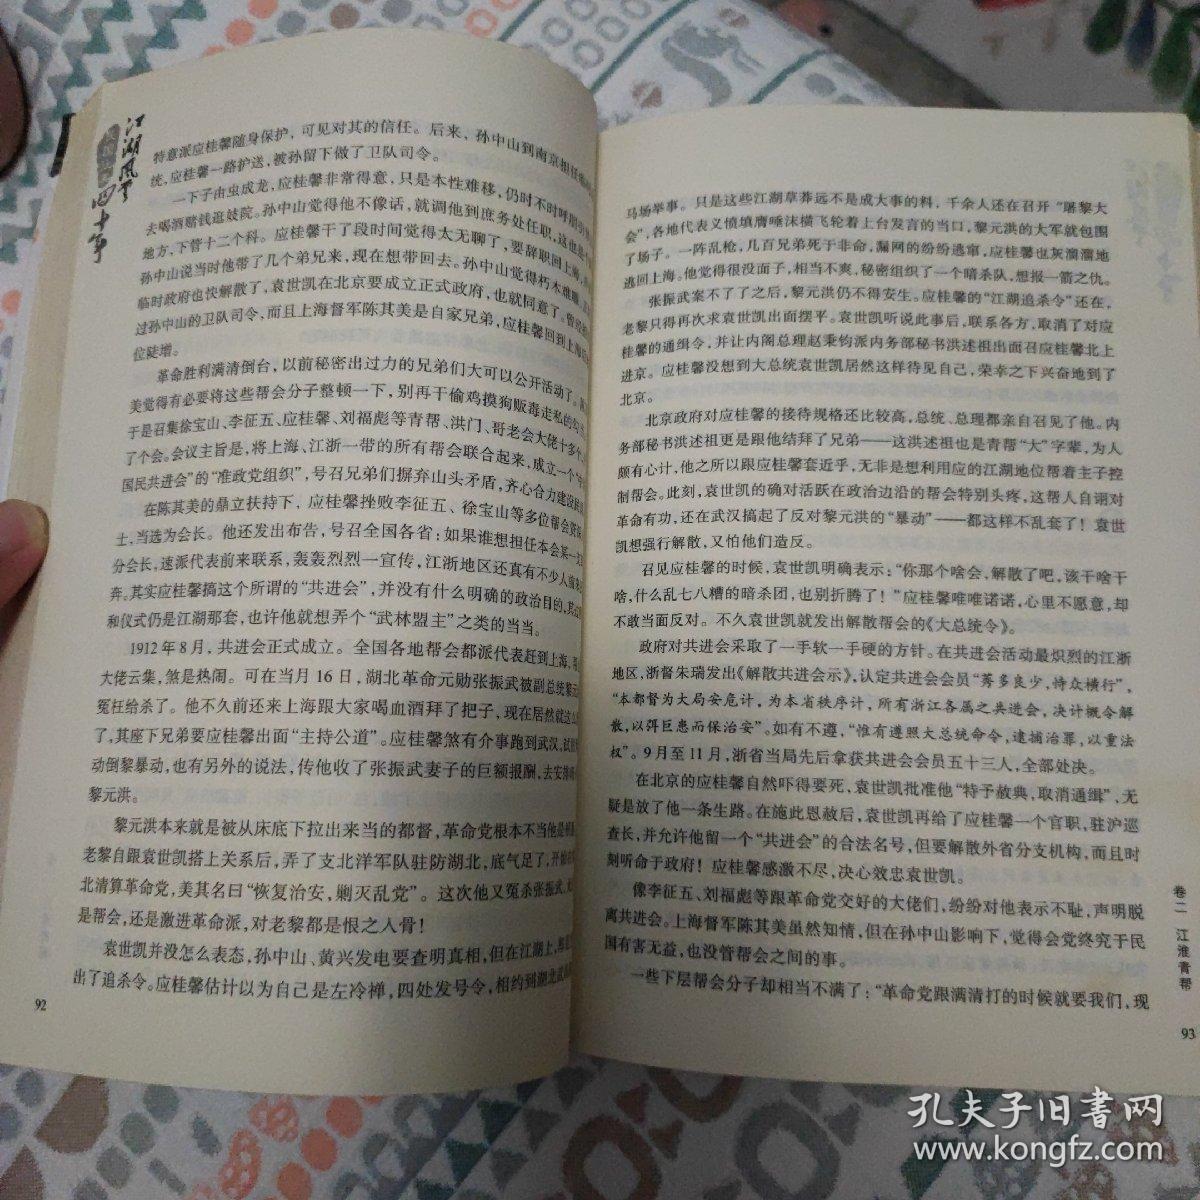 江湖风云
四十年
特意派应桂馨随身保护，可见对其的信任。后来，孙中山到南京担任
统，应桂馨一路护送，被孙留下做了卫队司令。
一下子由虫成龙，应桂馨非常得意，只是本性难移，仍时不时呼朋引
去喝酒赌钱逛妓院。孙中山觉得他不像话，就调他到庶务处任职，这也是个
地方，下管十二个科。应桂馨干了段时间觉得太无聊了，要辞职回上海，
孙中山说当时他带了几个弟兄来，现在想带回去。孙中山觉得朽木难雕，
临时政府也快解散了，袁世凯在北京要成立正式政府，也就同意了。曾经
过孙中山的卫队司令，而且上海督军陈其美是自家兄弟，应桂馨回到上海后
位陡增。
革命胜利满清倒台，以前秘密出过力的兄弟们大可以公开活动了。
美觉得有必要将这些帮会分子整顿一下，别再干偷鸡摸狗贩毒走私的勾当，
于是召集徐宝山、李征五、应桂馨、刘福彪等青帮、洪门、哥老会大佬十多个
了个会。会议主旨是，将上海、江浙一带的所有帮会联合起来，成立一个
国民共进会”的“准政党组织”，号召兄弟们摒弃山头矛盾，齐心合力建设民国
在陈其美的鼎立扶持下，应桂馨挫败李征五、徐宝山等多位帮会资
士，当选为会长。他还发出布告，号召全国各省：如果谁想担任本会某一支
分会长，速派代表前来联系，轰轰烈烈一宣传，江浙地区还真有不少人前来
奔。其实应桂馨搞这个所谓的“共进会”，并没有什么明确的政治目的，其
和仪式仍是江湖那套，也许他就想弄个“武林盟主”之类的当当。
1912年8月，共进会正式成立。全国各地帮会都派代表赶到上海，
大佬云集，煞是热闹。可在当月16日，湖北革命元勋张振武被副总统黎元
冤枉给杀了。他不久前还来上海跟大家喝血酒拜了把子，现在居然就这么
了，其座下兄弟要应桂馨出面“主持公道”。应桂馨煞有介事跑到武汉，试图
动倒黎暴动，也有另外的说法，传他收了张振武妻子的巨额报酬，去安排
黎元洪。
黎元洪本来就是被从床底下拉出来当的都督，革命党根本不当他是
老黎自跟袁世凯搭上关系后，弄了支北洋军队驻防湖北，底气足了，开始在
北清算革命党，美其名曰“恢复治安，剿灭乱党”。这次他又冤杀张振武，
是帮会，还是激进革命派，对老黎都是恨之人骨！
袁世凯并没怎么表态，孙中山、黄兴发电要查明真相，但在江湖上，那
出了追杀令。应桂馨估计以为自己是左冷禅，四处发号令，相约到湖北武
92
马场举事。只是这些江湖草莽远不是成大事的料，千余人还在召开“屠黎大
会”，各地代表义愤填膺唾沫横飞轮着上台发言的当口，黎元洪的大军就包围
了场子。一阵乱枪，几百兄弟死于非命，漏网的纷纷逃窜，应桂馨也灰溜溜地
逃回上海。他觉得很没面子，相当不爽，秘密组织了一个暗杀队，想报一箭之仇。
张振武案不了了之后，黎元洪仍不得安生。应桂馨的“江湖追杀令”还在，
老黎只得再次求袁世凯出面摆平。袁世凯听说此事后，联系各方，取消了对应
桂馨的通缉令，并让内阁总理赵秉钧派内务部秘书洪述祖出面召应桂馨北上
进京。应桂馨没想到大总统袁世凯居然这样待见自己，荣幸之下兴奋地到了
北京。
北京政府对应桂馨的接待规格还比较高，总统、总理都亲自召见了他。内
务部秘书洪述祖更是跟他结拜了兄弟——这洪述祖也是青帮“大”字辈，为人
颇有心计，他之所以跟应桂馨套近乎，无非是想利用应的江湖地位帮着主子控
制帮会。此刻，袁世凯的确对活跃在政治边沿的帮会特别头疼，这帮人自诩对
革命有功，还在武汉搞起了反对黎元洪的“暴动”——都这样不乱套了！袁世
凯想强行解散，又怕他们造反。
召见应桂馨的时候，袁世凯明确表示：“你那个啥会，解散了吧，该干啥干
啥，什么乱七八糟的暗杀团，也别折腾了！”应桂馨唯唯诺诺，心里不愿意，却
不敢当面反对。不久袁世凯就发出解散帮会的《大总统令》。
政府对共进会采取了一手软一手硬的方针。在共进会活动最炽烈的江浙
地区，浙督朱瑞发出《解散共进会示》，认定共进会会员“莠多良少，恃众横行”，
“本都督为大局安危计，为本省秩序计，所有浙江各属之共进会，决计概令解
散，以弭巨患而保治安”。如有不遵，“惟有遵照大总统命令，逮捕治罪，以重法
权”。9月至11月，浙省当局先后拿获共进会会员五十三人，全部处决。
在北京的应桂馨自然吓得要死，袁世凯批准他“特予赦典，取消通缉”，无
疑是放了他一条生路。在施此恩赦后，袁世凯再给了应桂馨一个官职，驻沪巡
查长，并允许他留一个“共进会”的合法名号，但要解散外省分支机构，而且时
刻听命于政府！应桂馨感激不尽，决心效忠袁世凯。
像李征五、刘福彪等跟革命党交好的大佬们，纷纷对他表示不耻，声明脱
离共进会。上海督军陈其美虽然知情，但在孙中山影响下，觉得会党终究于民
国有害无益，也没管帮会之间的事。
一些下层帮会分子却相当不满了：“革命党跟满清打的时候就要我们，现
卷二 江淮青帮
93
孔夫子旧书网
www.kongfz.com